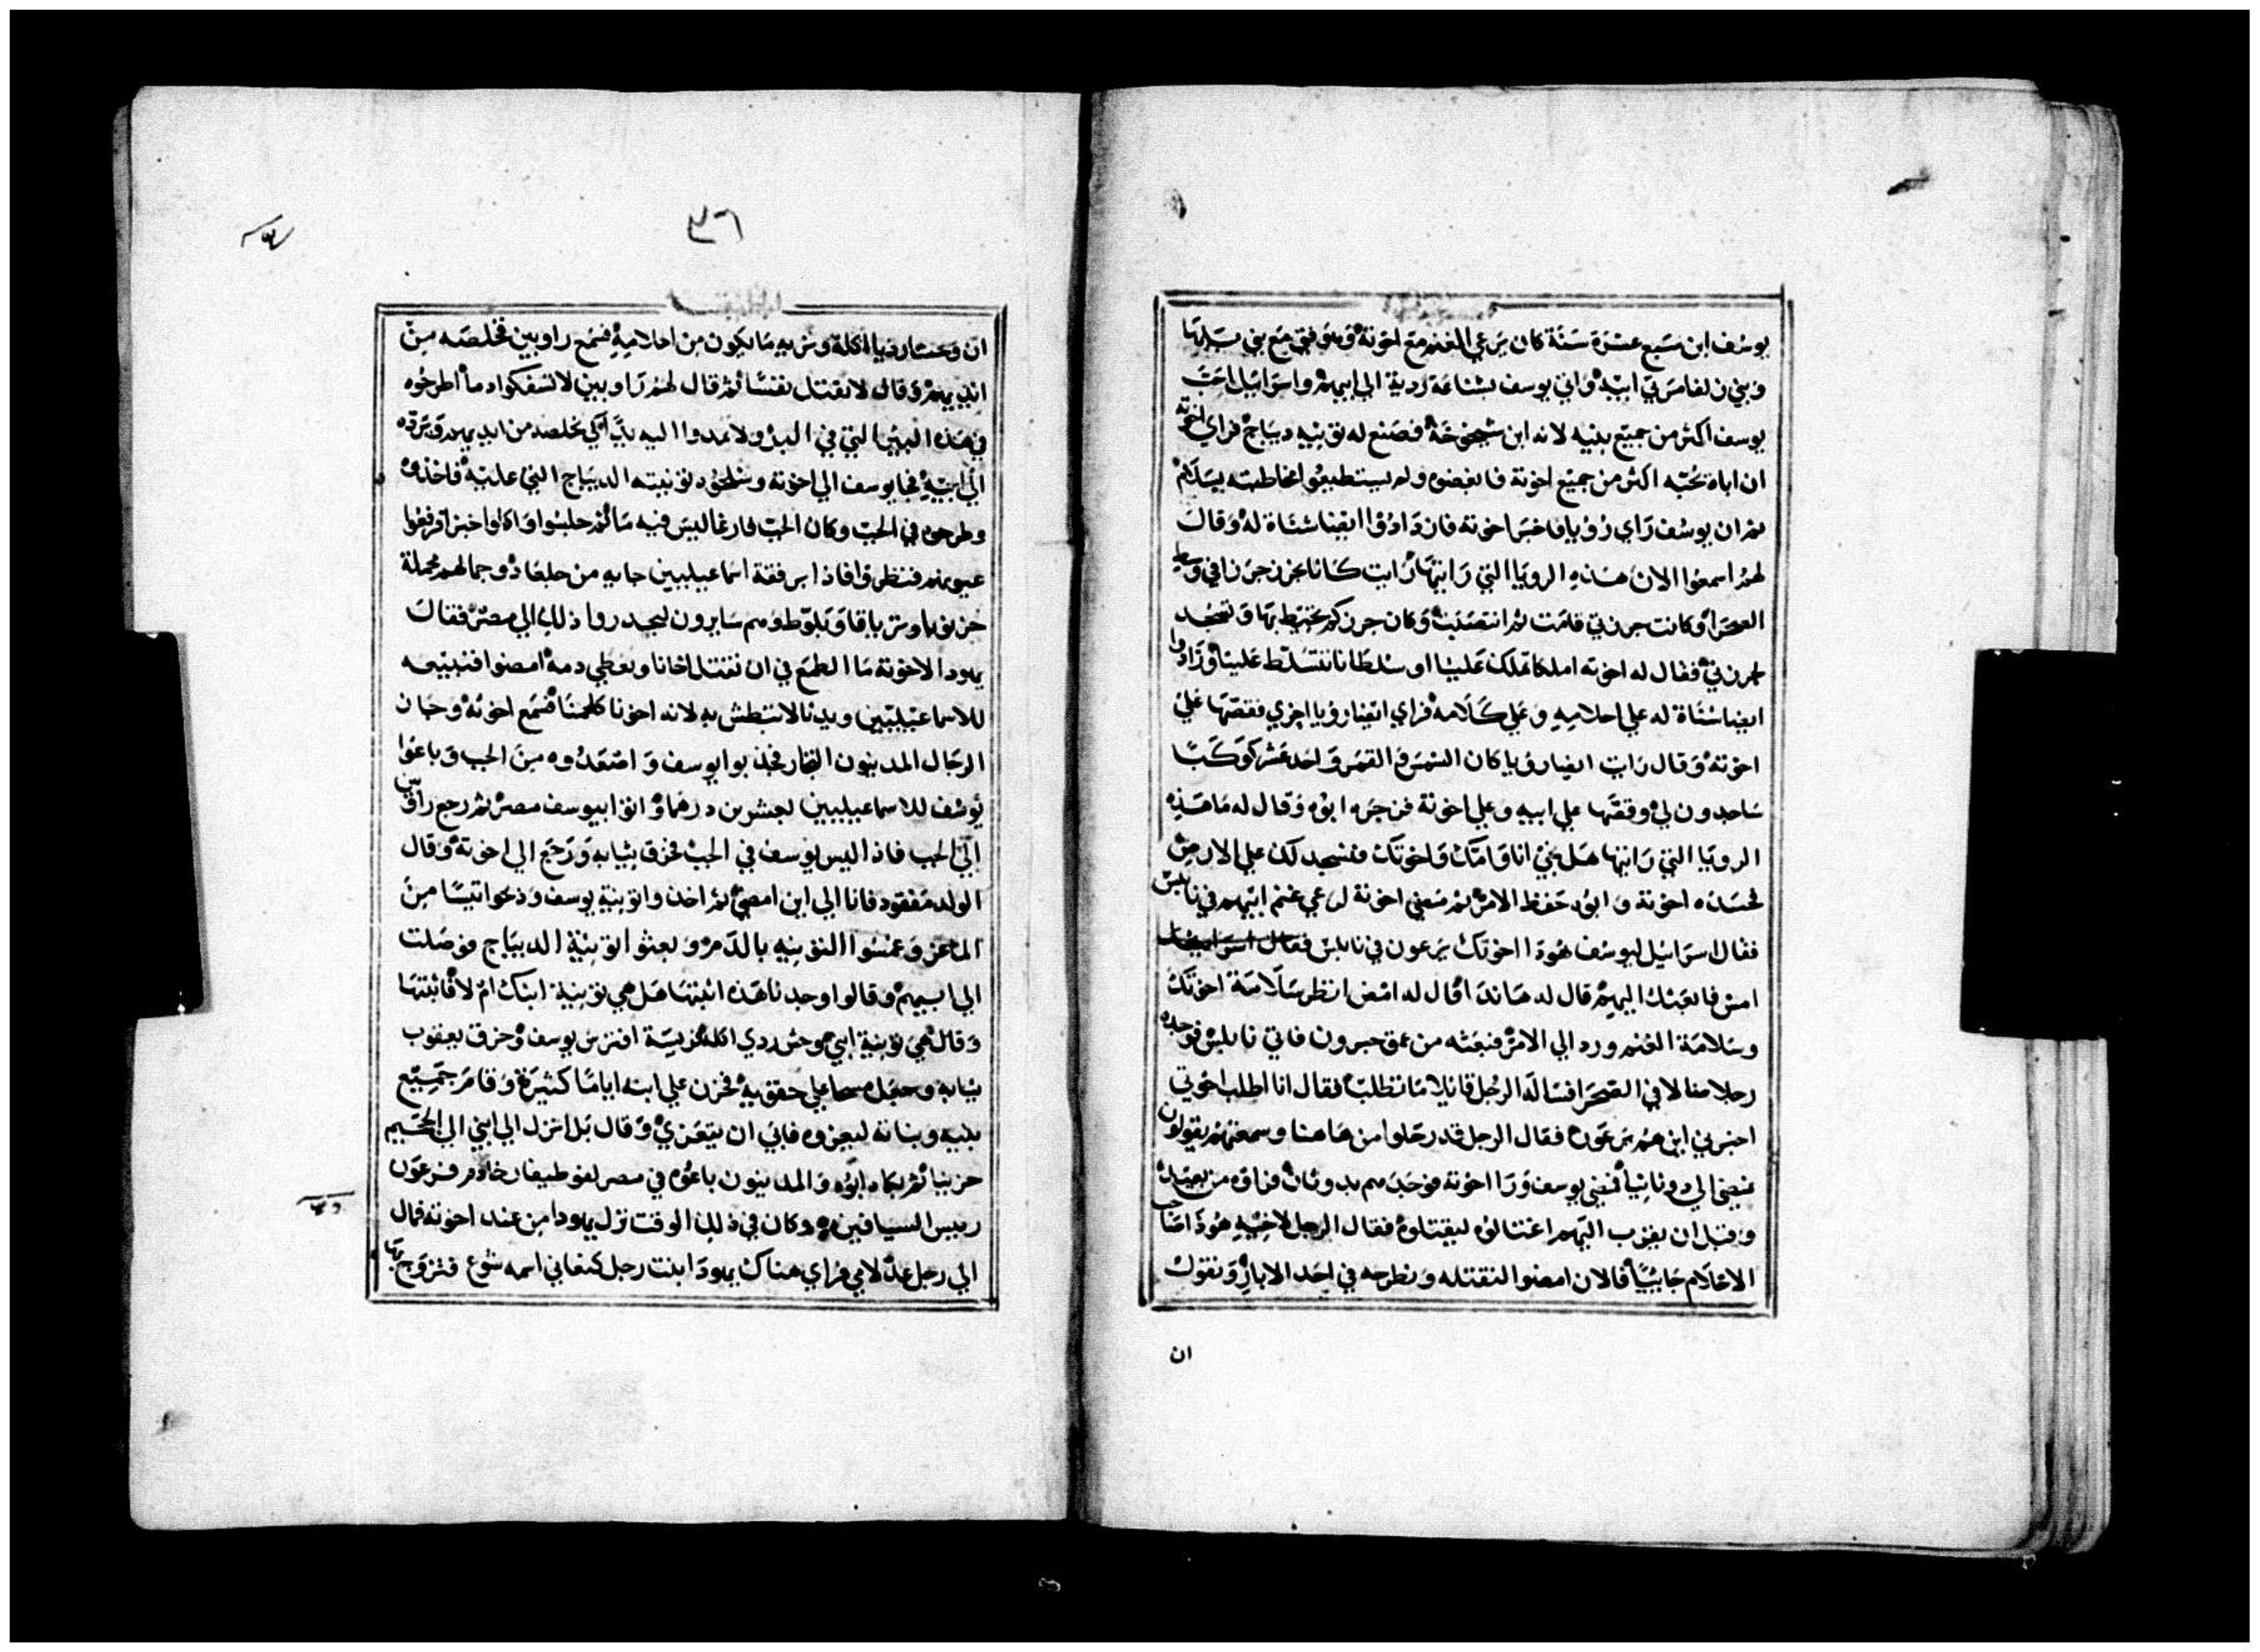 يوسف ابن سبع عشرة سنة كان يرعي الغنم مع اخوته وهو فتي مع بني بلها
وبني زلفا سريتي ابيه واتي يوسف بشناعة ردية الي ابيهم واسراييل احب
يوسف اكثر من جميع بنيه لانه ابن شيخوخة فصنع له تونيه ديباج فراي اخوته
ان اباه يحبه اكثر من جميع اخوته فابغضوه ولم يستطيعوا مخاطبته بسلام
ثم ان يوسف راي رؤيا فاخبر اخوته فازدادوا ايضا شناة له وقال
لهم اسمعوا الان هذه الرويا التي رايتها رايت كانا نحزن حزنا في وسط
الصحرا وكانت جرزتي قامت ثم انتصبت وكان جرزكم تحيط بها وتسجد
لجرزتي فقال له اخوته املكا تملك علينا او سلطانا تتسلط علينا وزادوا
ايضا شناة له علي احلامه وعلي كلامه فراي ايضا رويا اخري فقصها علي
اخوته وقال رايت ايضا رويا كان الشمس والقمر واحد عشر كوكبا
ساجدون لي وقصها علي ابيه وعلي اخوته فزجره ابوه وقال له ما هذه
الرويا التي رايتها هل يجي انا وامك واخوتك فنسجد لك علي الارض
فحسده اخوته وابوه حفظ الامر ثم مضي اخوته لرعي غنم ابيهم في نابلس
فقال اسراييل ليوسف هوذا اخوتك يرعون في نابلس فقال اسراييل
امض فابعثك اليهم قال له هانذا قال له امض انظر سلامة اخوتك
وسلامة الغنم ورد الي الامر فبعثه من عمق حبرون فاتي نابلس فوجده
رجل ضالا في الصحرا فساله الرجل قايلا ما تطلب فقال انا اطلب اخوتي
اخبرني اين هم يرعون فقال الرجل قد رحلوا من هاهنا وسمعتهم يقولون
نمضي الي دوثان فمضي يوسف ورا اخوته فوجدهم بدوثان فراوه من بعيد
وقبل ان يقرب اليهم اغتالوه ليقتلوه فقال الرجل لاخيه هوذا صاحب
الاحلام جاييا فالان امضوا لنقتله ونطرحه في احد الابار ونقول
ان
٣٦
ان وحشا رديا اكله ونري ما يكون من احلامه فسمع راوبين فخلصه من
ايديهم وقال لا نقتل نفسا ثم قال لهم راوبين لا تسفكوا دما اطرحوه
في هذه البير التي في البر ولا تمدوا اليه يدا لكي يخلصه من ايديهم ويرده
الي ابيه فجا يوسف الي اخوته وسلحوه تونيته الديباج التي عليه فاخذوه
وطرحوه في الجب وكان الجب فارغا ليس فيه ما ثم جلسوا واكلوا خبزا ورفعوا
عيونهم فنظروا فاذا برفقة اسماعيليين جايه من جلعاد وجمالهم محملة
خرنوبا وترياقا وبلوطا وهم سايرون ليحدروا ذلك الي مصر فقال
يهودا لاخوته ما الطمع في ان نقتل اخانا ونغطي دمه امضوا فنبيعه
للاسماعيليين ويدنا لا تبطش به لانه اخونا لحمنا فسمع اخوته وجان
الرجال المدينيون التجار فجذبوا يوسف واصعدوه من الجب وباعوا
يوسف للاسماعيليين بعشرين درهما واتوا بيوسف مصر ثم رجع راوبين
الي الجب فاذا ليس يوسف في الجب فخرق ثيابه ورجع الي اخوته وقال
الولد مفقود فانا الي اين امضي ثم اخذوا تونية يوسف وذبحوا تيسا من
الماعز وغمسوا التونيه بالدم وبعثوا تونية الديباج فوصلت
الي ابيهم وقالوا وجدنا هذه اثبتها هل هي تونية ابنك ام لا فاثبتها
وقال هي تونية ابني وحش ردي اكله فريسة افترس يوسف وخرق يعقوب
ثيابه وجعل مسحا علي حقويه فحزن علي ابنه اياما كثيرة وقام جميع
بنيه وبناته ليعزوه فابي ان يتعزي وقال بل انزل الي ابني الي الجحيم
حزينا ثم بكاه ابوه والمدينيون باعوه في مصر لفوطيفار خادم فرعون
رييس السيافين وكان في ذلك الوقت نزل يهودا من عند اخوته فمال
الي رجل عدلامي فراي هناك يهودا ابنت رجل كنعاني اسمه شوع فتزوج بها